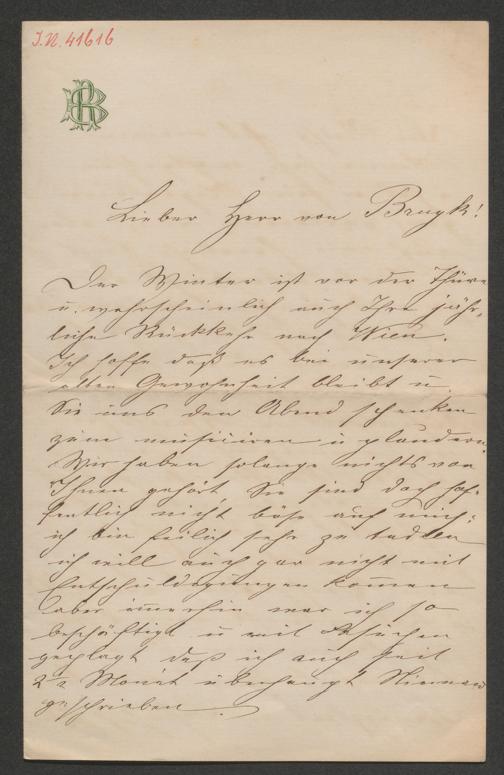 I.N. 41616
BR
Lieber Herr von Bruyk!
Der Winter ist vor der Thüre
u. wahrscheinlich auch Ihre jähr-
liche Rückkehr nach Wien.
Ich hoffe daß es bei unserer
alten Gewohnheit bleibt u.
Sie uns den Abend schenken
zum musiciren u plaudern.
Wir haben solange nichts von
Ihnen gehört, Sie sind doch hof-
fentlich nicht böse auf mich;
ich bin freilich sehr zu tadeln
ich will auch gar nicht mit
Entschuldigungen kommen
aber immerhin war ich so
beschäftigt u mit Besuchen
geplagt daß ich auch seit
2 1/2 Monat überhaupt Niemand
geschrieben